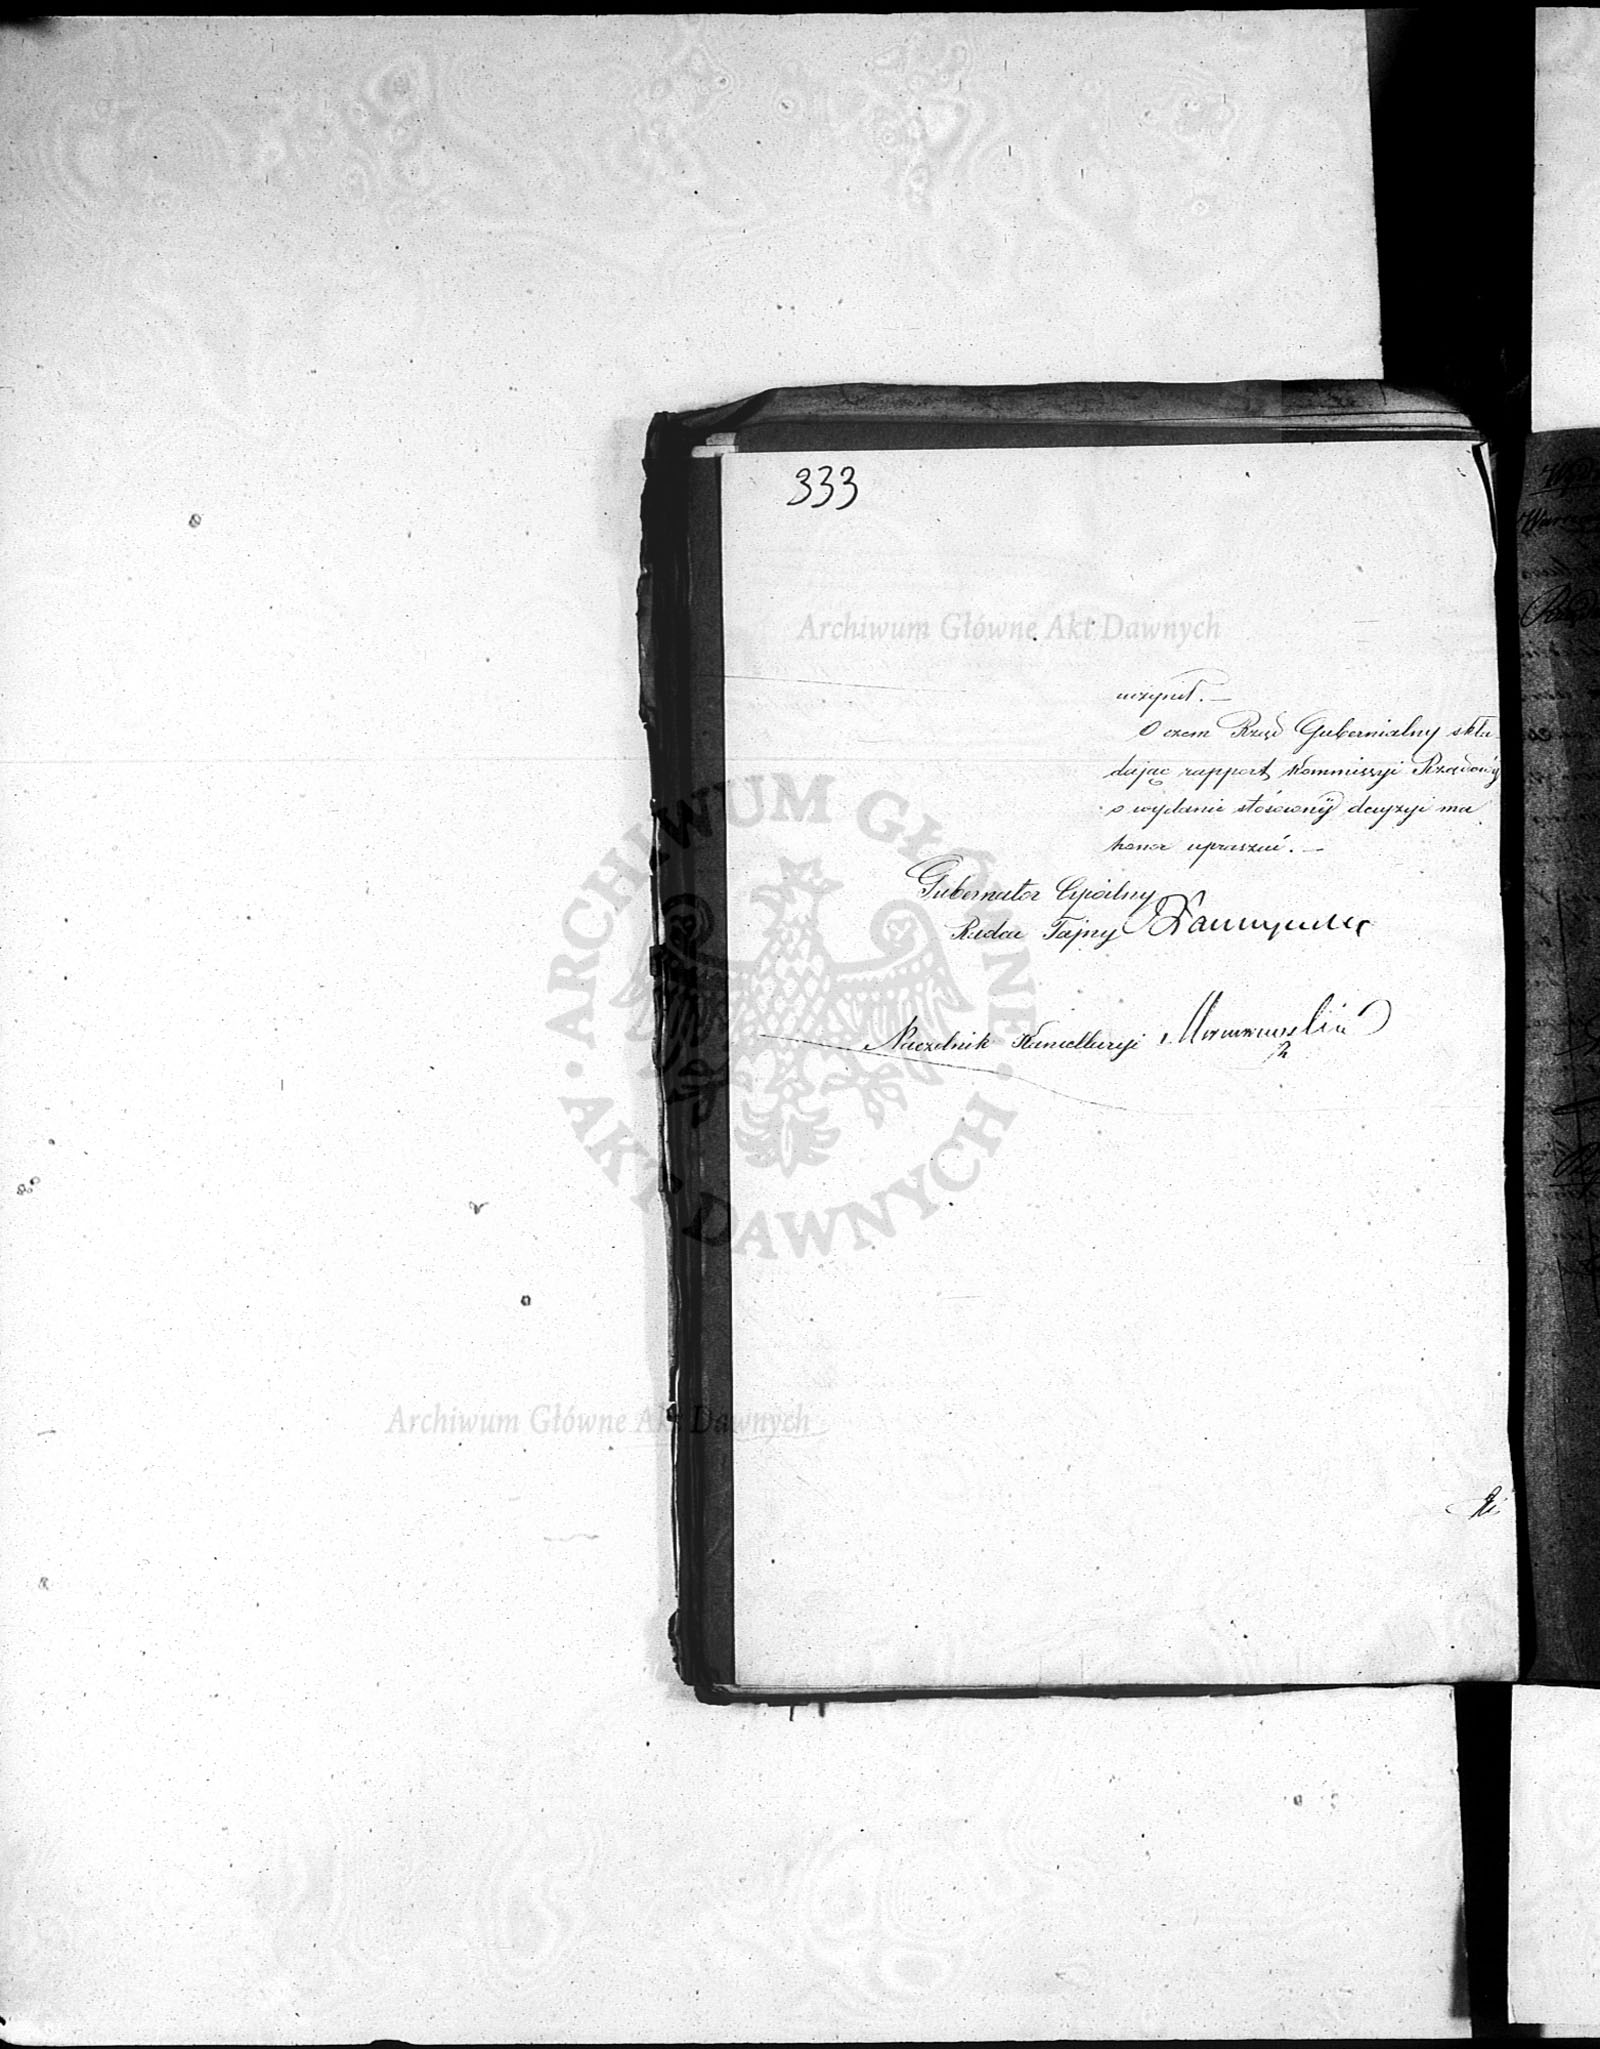 333
uczynił. —
O czem Rząd Gubernialny skła-
dając rapport Kommissyi Rządowéy
o wydanie stósownéy decyzyi ma
honor upraszać. —
Gubernator Cywilny
Radca Tajny
Naczelnik Kancellaryi
Archiwum Główne Akt Dawnych
ARCHIWUM GŁÓWNE · AKT DAWNYCH ·
Archiwum Główne Akt Dawnych